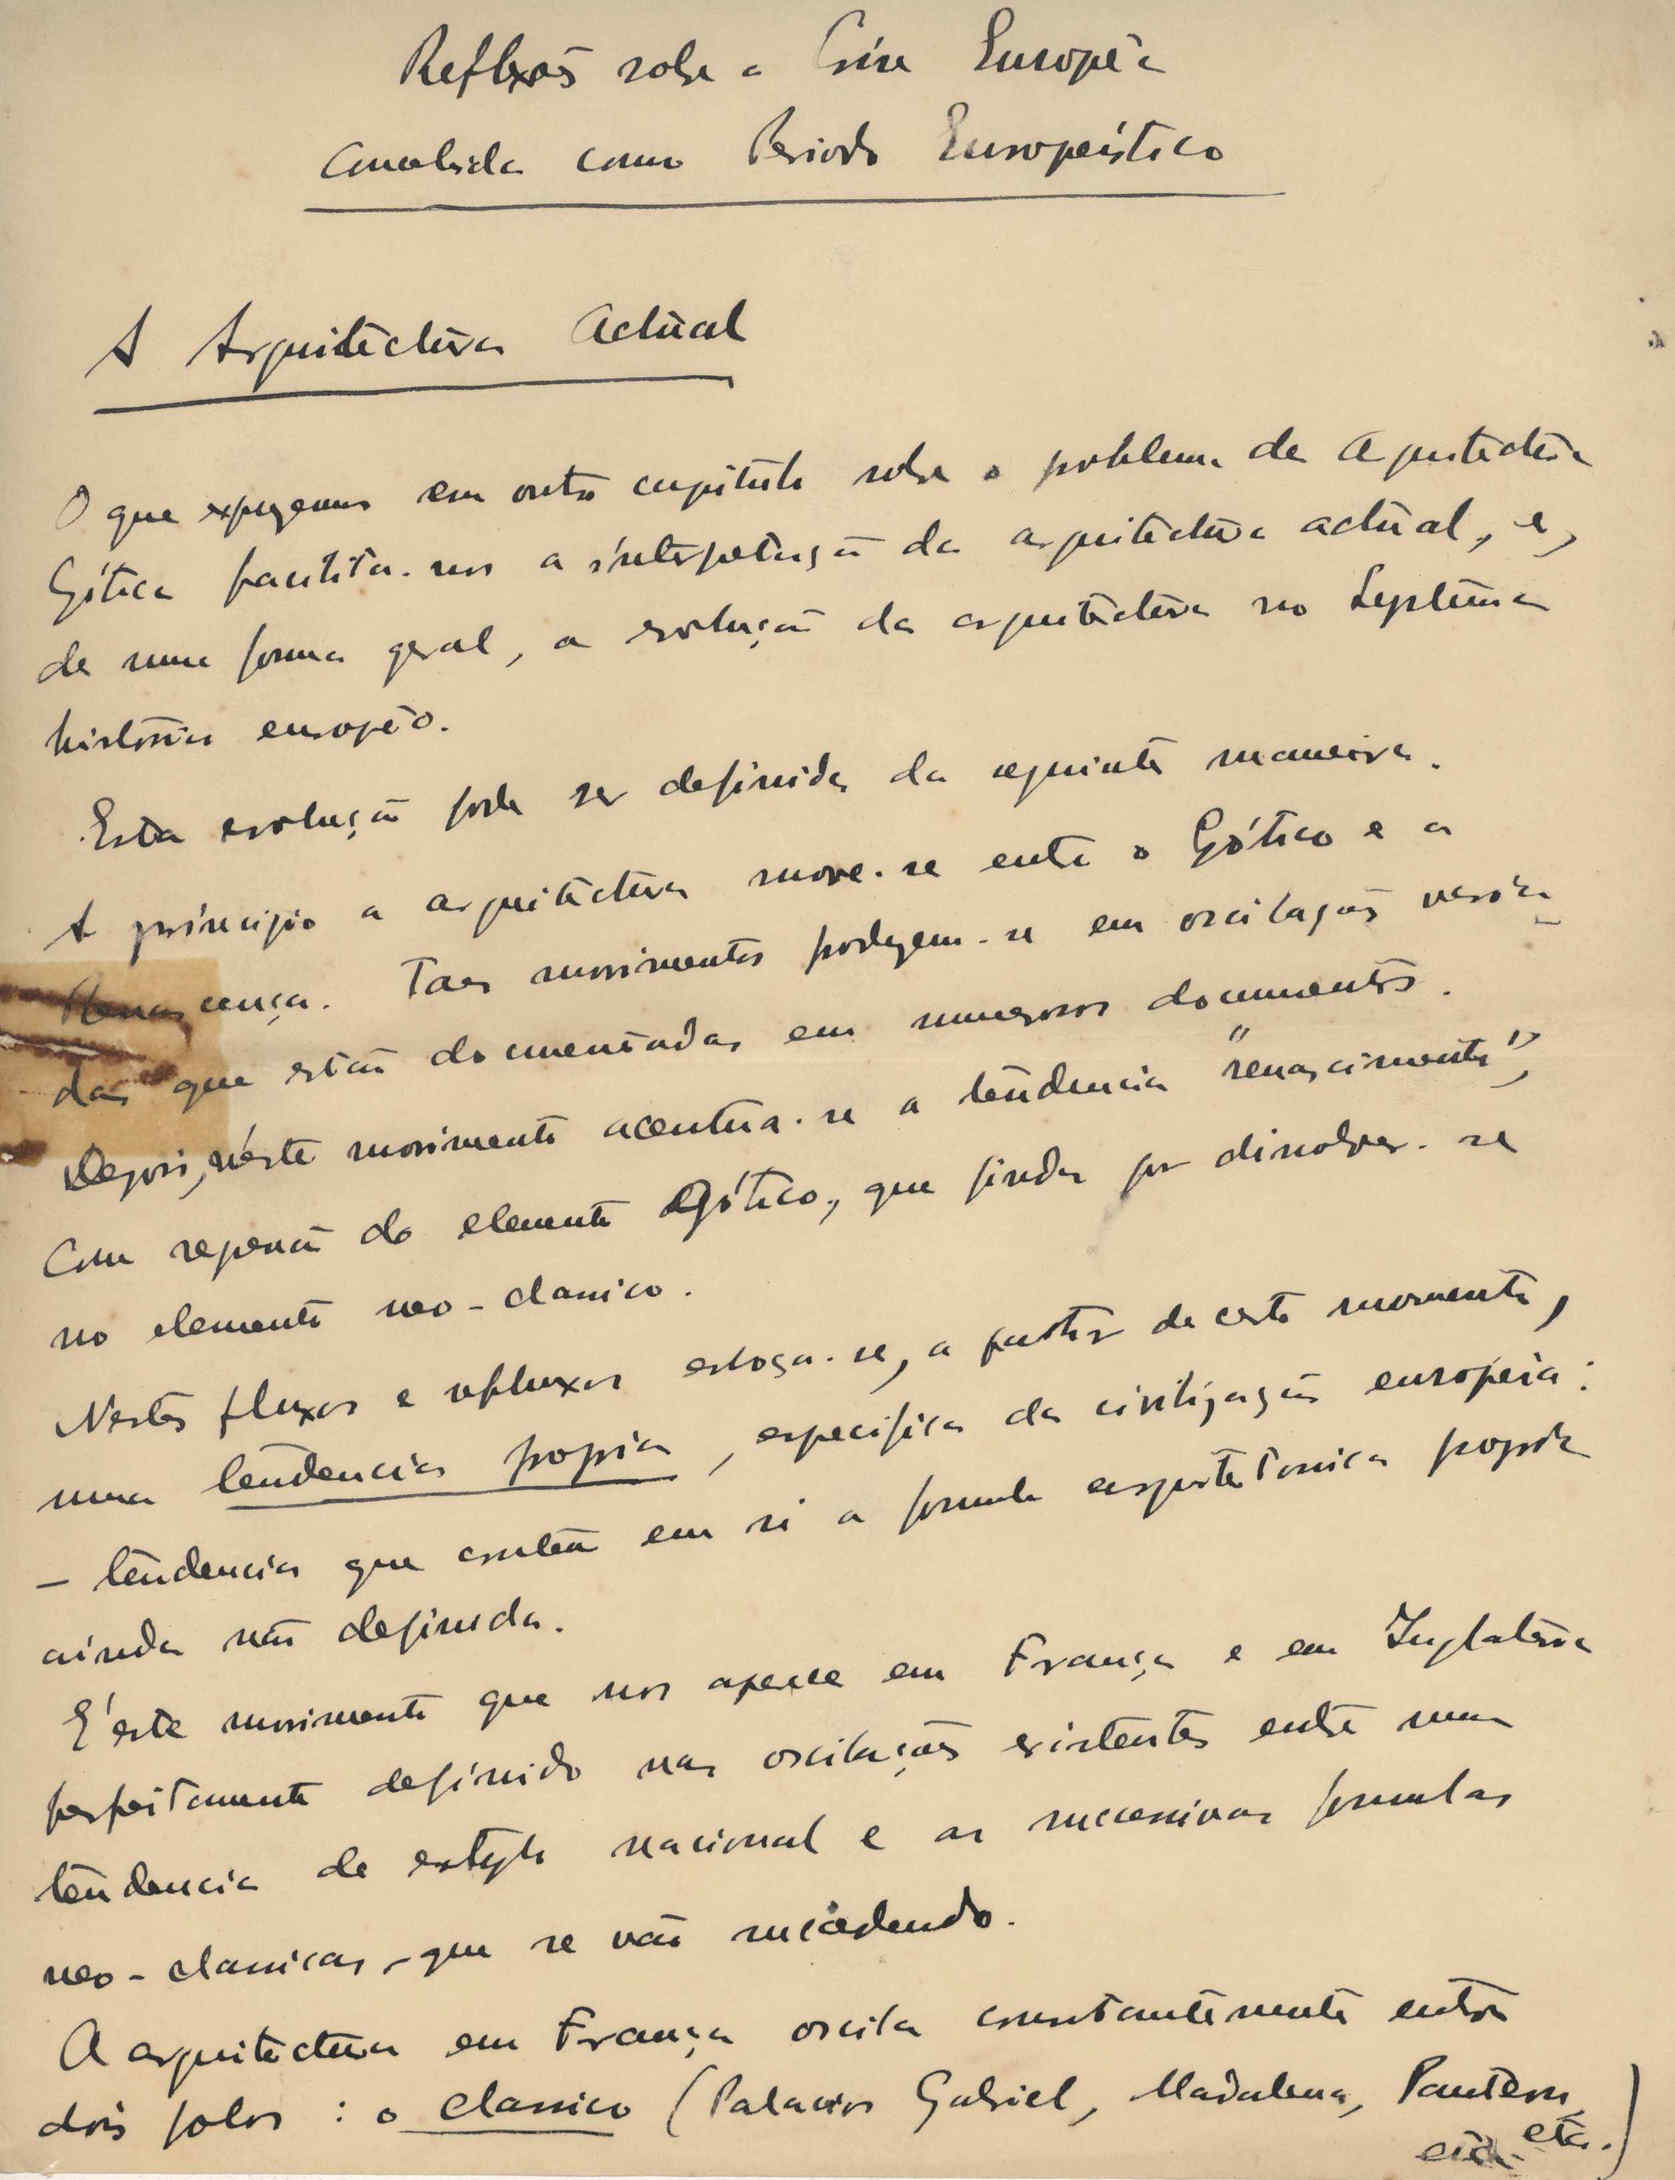 Reflexões sobre a Crise Européa
Concebida como Periodo Europeístico
A Arquitectura Actual
O que expuzemos em outro capitulo sobre o problema da Arquitectura
Gótica facilita-nos a interpretação da arquitectura actual, e,
de uma forma geral, a evolução da arquitectura no Systema
historico européo.
Esta evolução pode ser definida da seguinte maneira.
A principio a arquitectura move-se entre o Gótico e a
Renascença. Taes movimentos produzem-se em oscilações
das que estão documentadas em numerosos documentos.
Depois, néste movimento acentua-se a tendencia "renascimento",
com reperssão do elemento Gótico, que finda por dissolver-se
no elemento neo-classico.
Nestes fluxos e refluxos esboça-se, a partir de certo momento,
uma tendencia propria, especifica da civilização européia:
- tendencia que contem em si a formula arquitetonica propria
ainda não definida.
É este movimento que nos aparece em França e em Inglaterra
perfeitamente definido nas oscilações existentes entre uma
tendencia de estylo nacional e as sucessivas formulas
neo-classicas, que se vão sucedendo.
A arquitectura em França oscila constantemente entre
dois polos: o classico (Palacios Gabriel, Madalena, Panteon,
etc.)